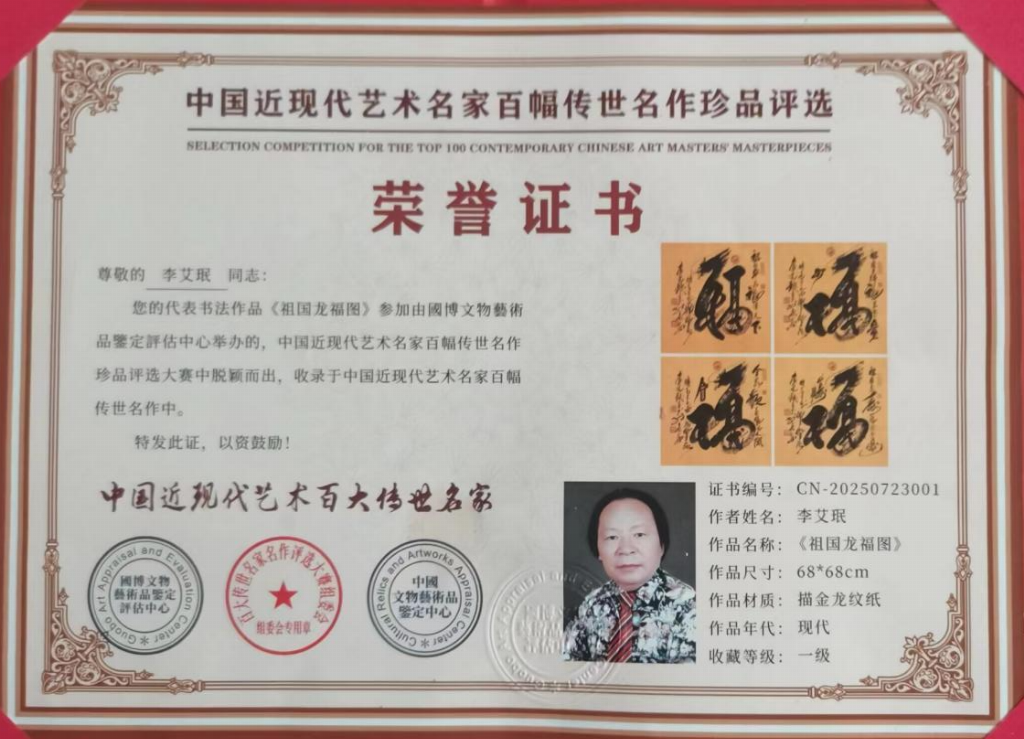 中国近现代艺术名家百幅传世名作珍品评选
SELECTION COMPETITION FOR THE TOP 100 CONTEMPORARY CHINESE ART MASTERS' MASTERPIECES
荣誉证书
尊敬的 李艾珉 同志：
您的代表书法作品《祖国龙福图》参加由國博文物藝術
品鑒定評估中心举办的，中国近现代艺术名家百幅传世名作
珍品评选大赛中脱颖而出，收录于中国近现代艺术名家百幅
传世名作中。
特发此证，以资鼓励！
中国近现代艺术百大传世名家
Guobo Art Appraisal and Evaluation Center
國博文物
藝術品鑒定
評估中心
百大传世名家名作评选大赛组委会
组委会专用章
Cultural Relics and Artworks Appraisal Center
中國
文物藝術品
鑒定中心
福
福
福
福
证书编号：CN-20250723001
作者姓名：李艾珉
作品名称：《祖国龙福图》
作品尺寸：68*68cm
作品材质：描金龙纹纸
作品年代：现代
收藏等级：一级